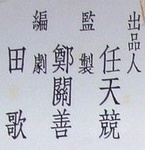 出品人
任天競
監製
鄭關善
編劇
田歌